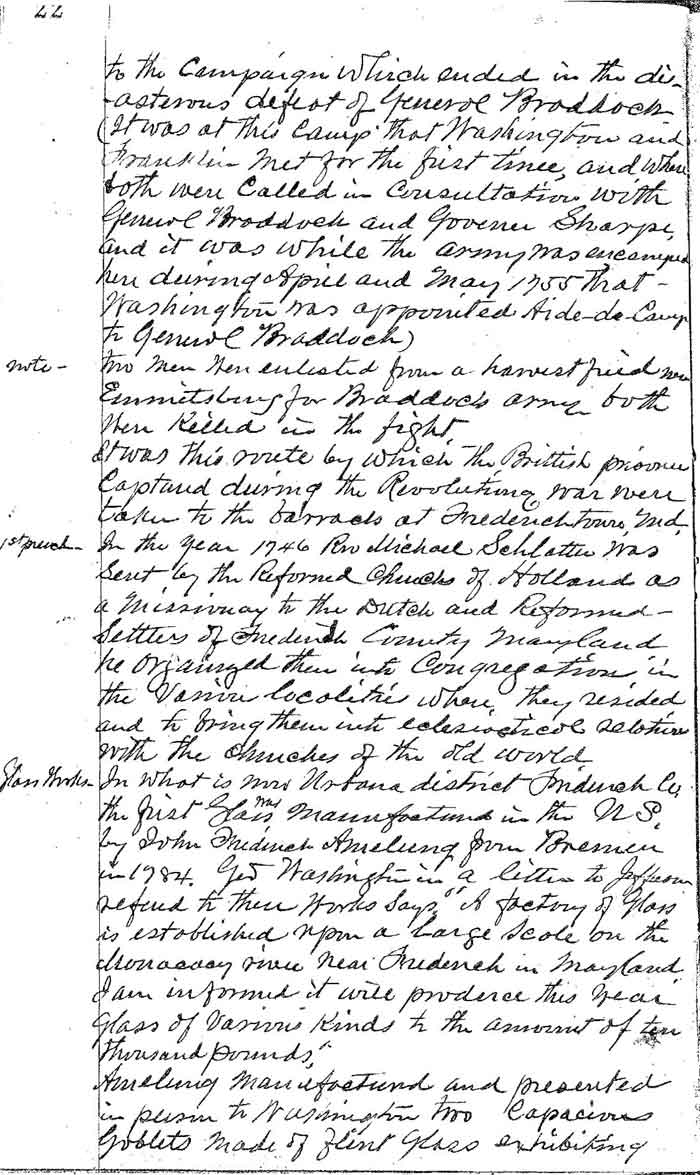 22
to the Campaign which ended in the dis-
-asterous defeat of General Braddock
(It was at this Camp that Washington and
Franklin Met for the first time, and where
both were Called in Consultation with
General Braddock and Govener Sharpe,
and it was while the army was encamped
here during April and May 1755 that -
Washington was appointed Aide-de-Camp
to General Braddock)
note - two men were enlisted from a harvest field near
Emmitsburg for Braddocks army both
were Killed in the fight
It was this route by which the Brittish prisoner
Captured during the Revolutionry war were
taken to the barracks at Fredericktown, Md,
1st preach - In the year 1746 Rev Michael Schlatter was
Sent by the Reformed Church of Holland as
a Missionary to the Dutch and Reformed -
Settlers of Frederick County Maryland
he Organized them into Congregation in
the Various localities where they resided
and to bring them into eclesiastical relations
with the churches of the old world
Glass Works - In what is now Urbana district Frederick Co,
the first Glass was Manufactured in the U S,
by John Frederick Amelung from Bremen
in 1784. Geo Washington in a letter to Jefferson
referred to these Works Says, "A factory of Glass
is established upon a Large Scale on the
Monacacy river near Frederick in Maryland
I am informed it will produce this year
Glass of Various Kinds to the amount of ten
thousand pounds,"
Amelung Manufactured and presented
in person to Washington two Capacious
Goblets Made of Flint Glass exhibiting